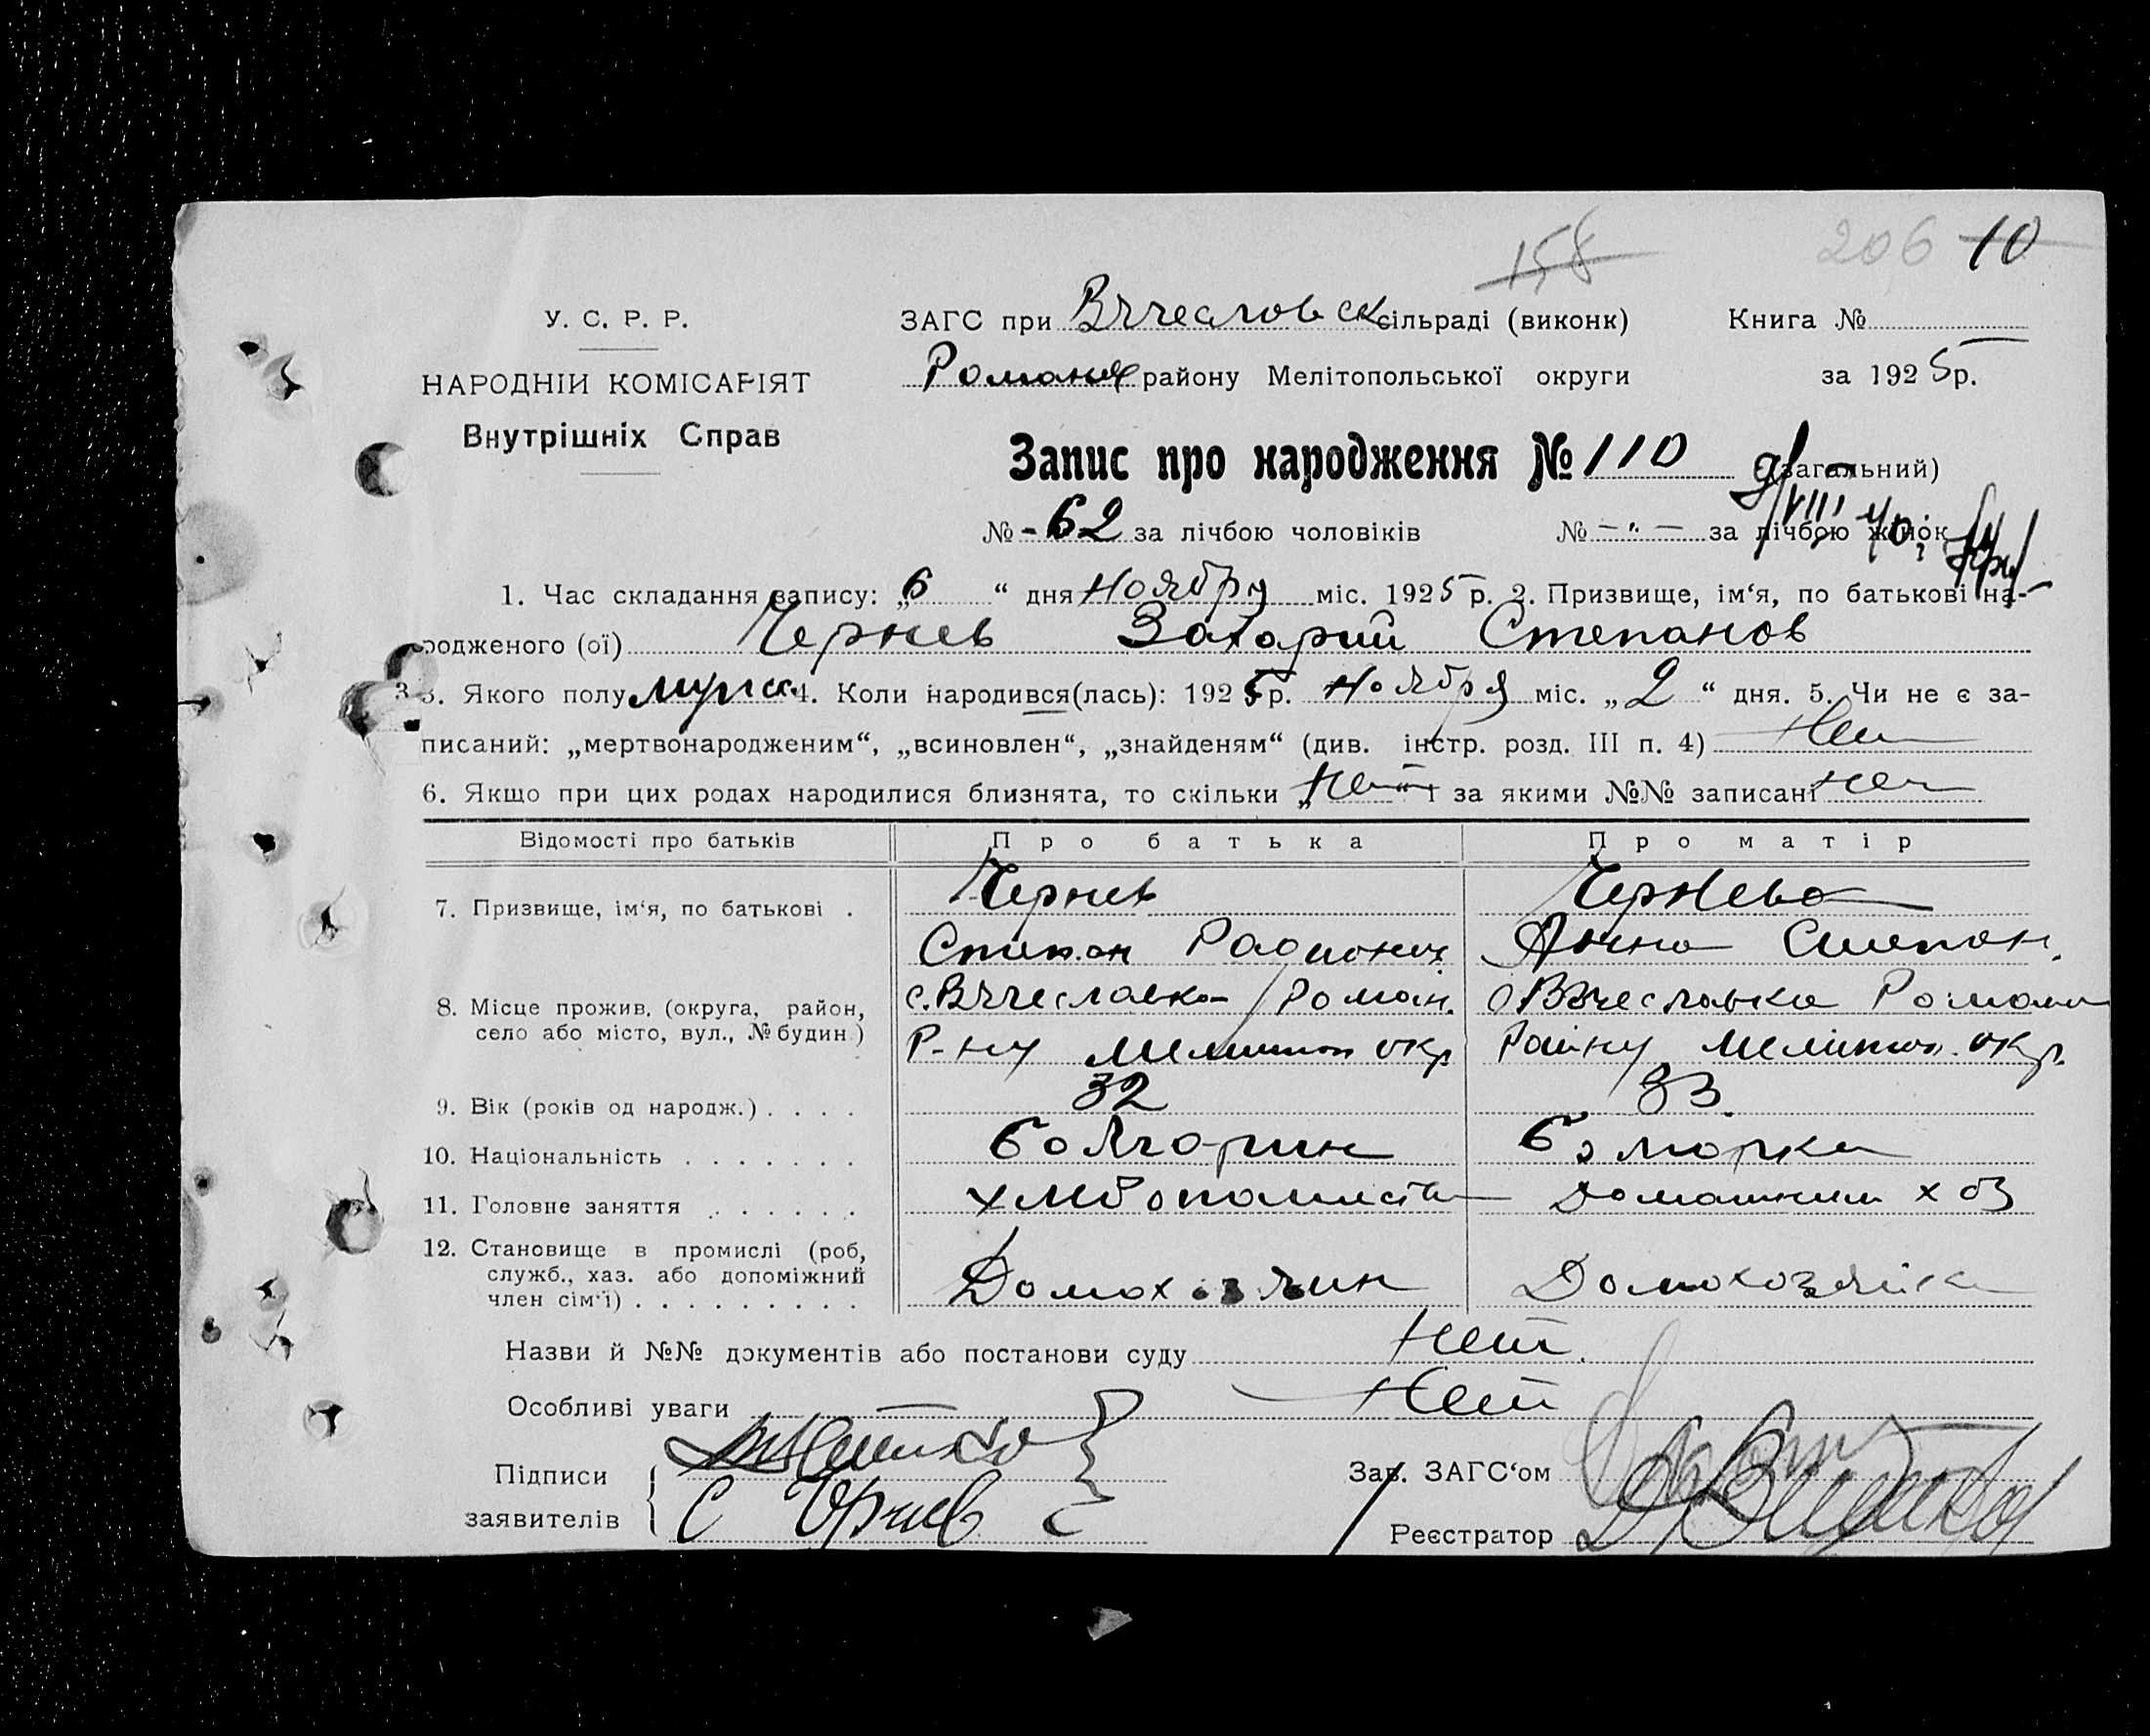 158 206 10
У. С. Р. Р.
ЗАГС при Вячеславск сільраді (виконк) Книга №
НАРОДНІЙ КОМІСАРІЯТ
Роман району Мелітопольської округи за 1925 р.
Внутрішніх Справ
Запис про народження № 110 (загальний)
№ - 62 за лічбою чоловіків № — „ — за лічбою жінок
1. Час складання запису: „6 “ дня Ноября міс. 1925 р. 2. Призвище, ім‘я, по батькові на-
родженого (ої) Чернев Захарий Степанов
3. Якого полу мужск 4. Коли народився(лась): 1925 р. Ноября міс. „2“ дня. 5. Чи не є за-
писаний: „мертвонародженим“, „всиновлен“, „знайденям“ (див. інстр. розд. III п. 4) Нет
6. Якщо при цих родах народилися близнята, то скільки „Нет“ і за якими №№ записані нет
Відомості про батьків Про батька Про матір
7. Призвище, ім‘я, по батькові . Чернев Чернева
Степан Радионов. Анна Степан.
8. Місце прожив. (округа, район, село або місто, вул., № будин.) с. Вячеславка Роман. с Вячеславка Роман
Р-ну Мелитоп окр Району Мелитоп. окр.
9. Вік (років од народж.) . . . . 32 33
10. Національність . . . . . . . Болгарин Болгарка
11. Головне заняття . . . . . . хлебопашест Домашним хоз
12. Становище в промислі (роб, служб., хаз. або допоміжний член сім‘ї) . . . . . . . . . Домохозяин Домохозяйка
Назви й №№ документів або постанови суду Нет.
Особливі уваги Нет
Підписи
заявителів С Чернев
Зав. ЗАГС‘ом
Реєстратор